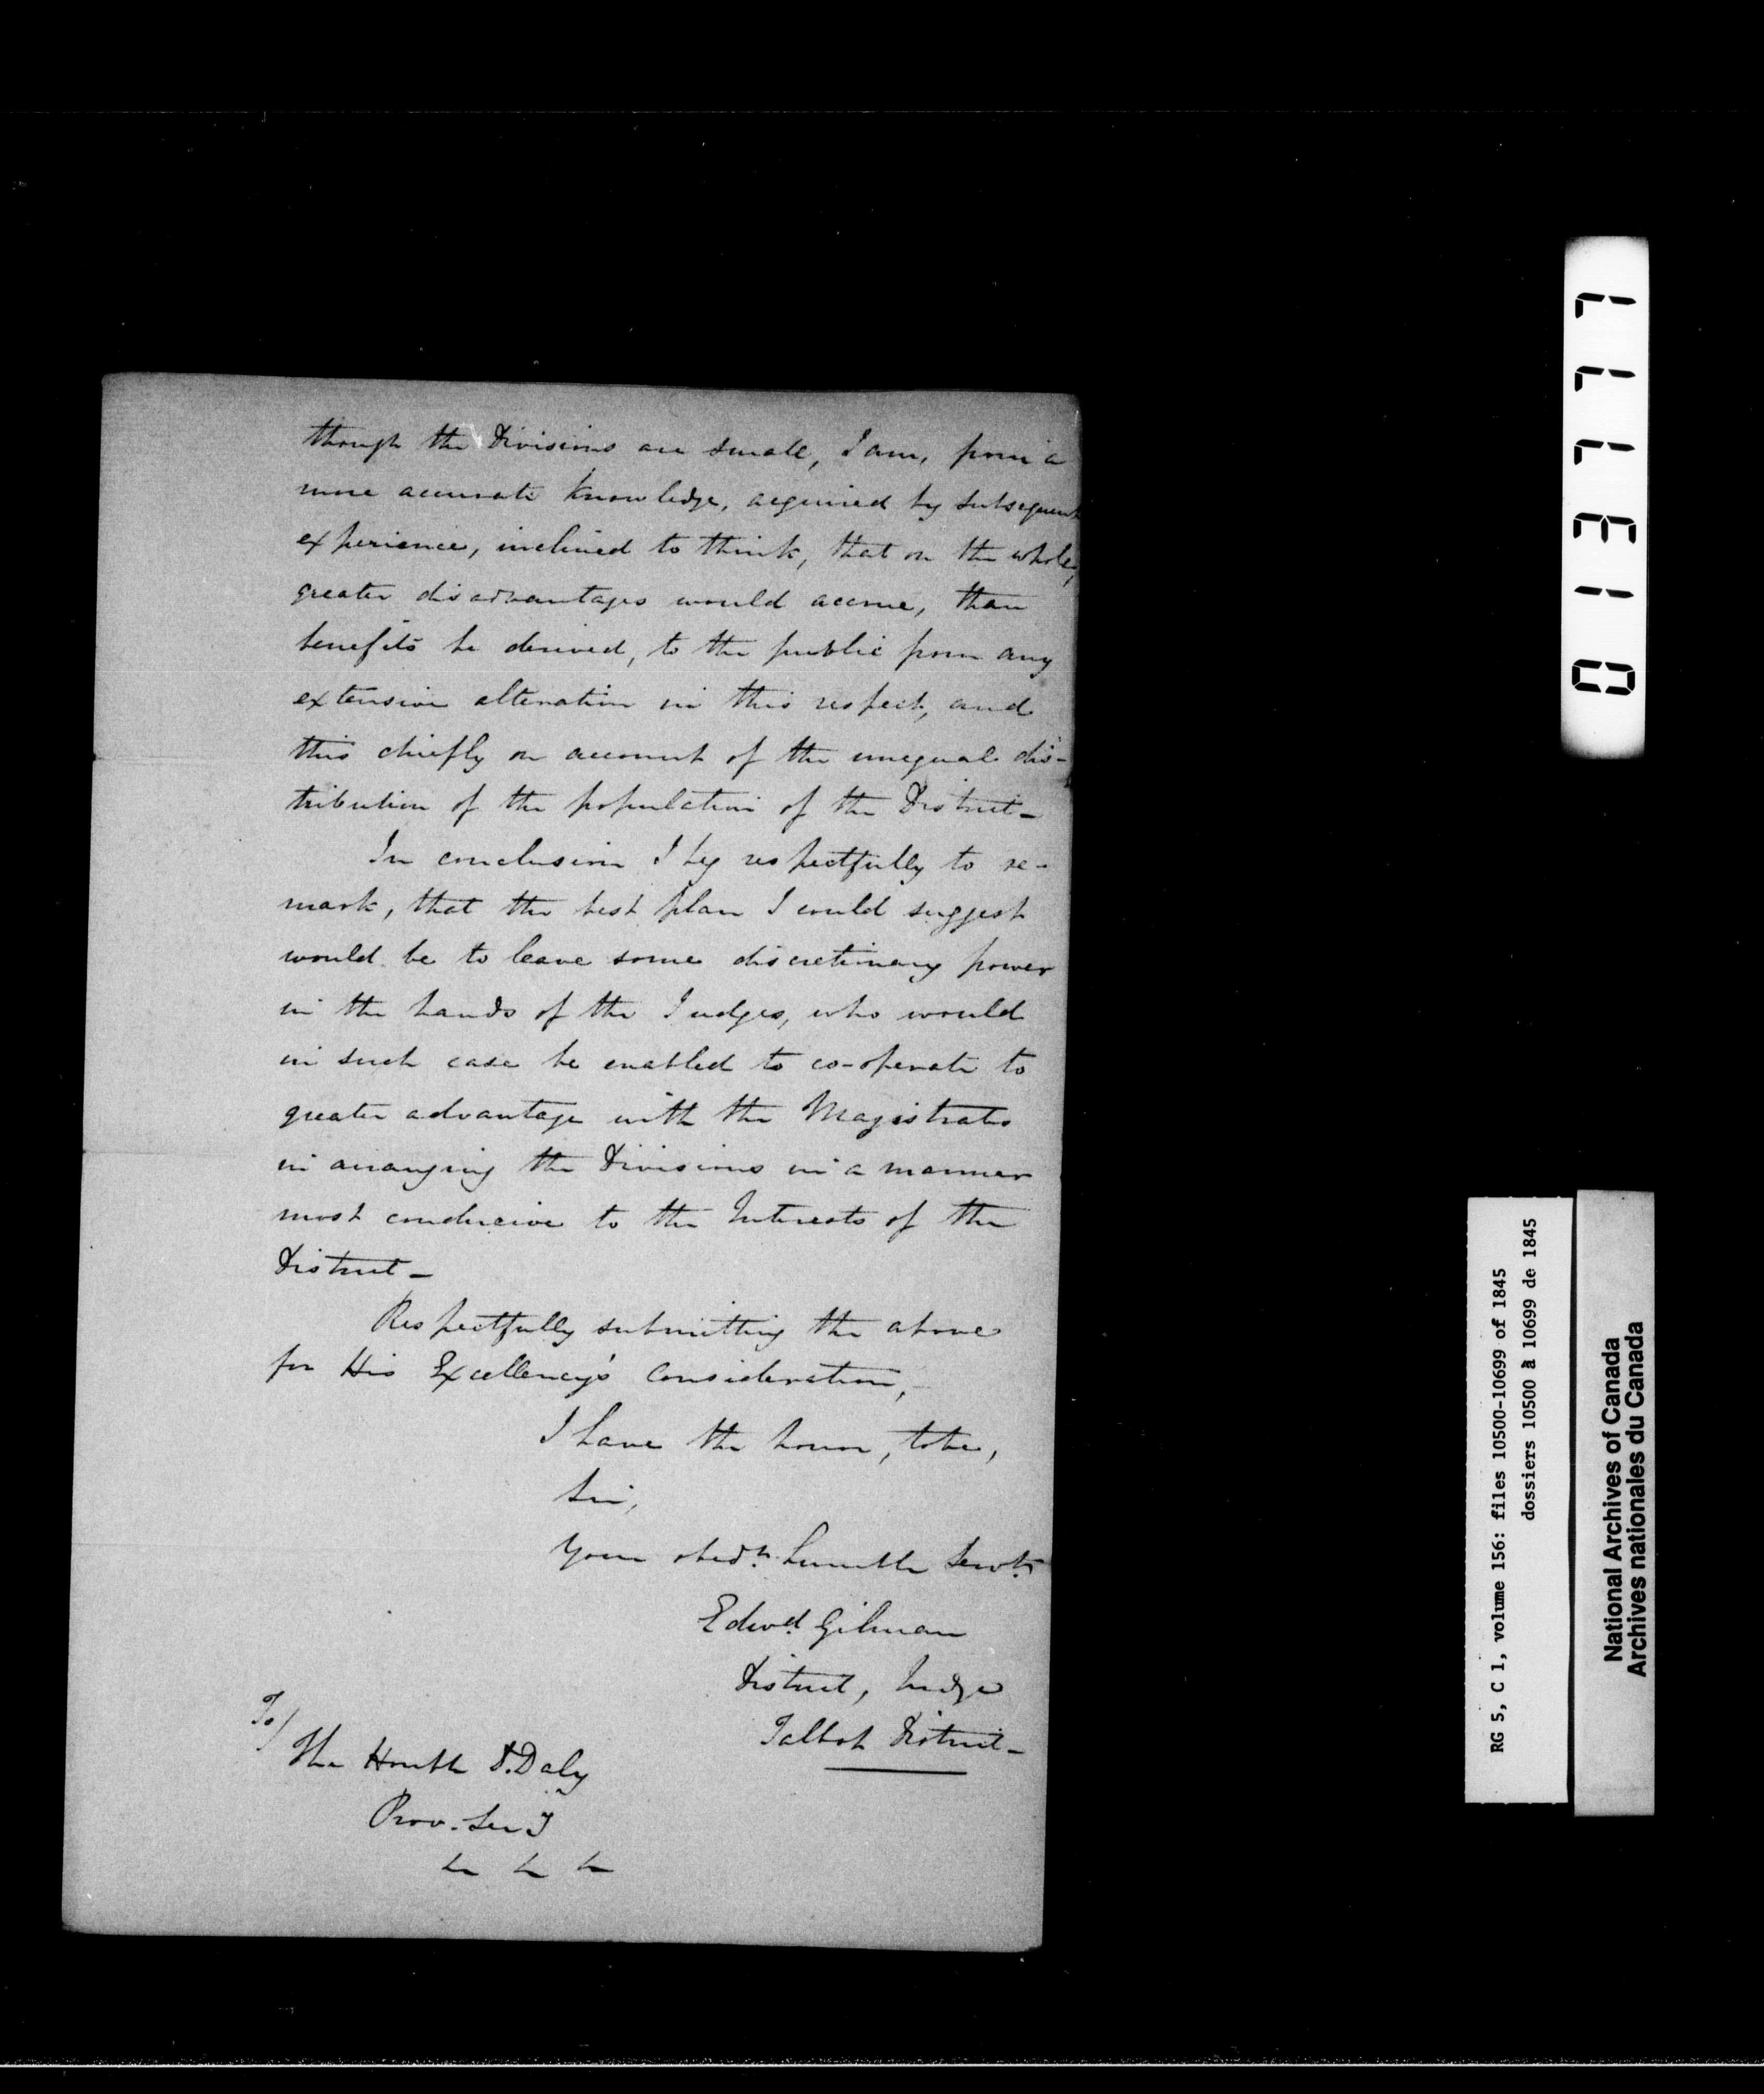 though the Divisions are small, I am, from a
more accurate knowledge, acquired by subsequent
experience, inclined to think, that on the whole,
greater disadvantages would accrue, than
benefits be derived, to the public from any
extensive alteration in this respect, and
this chiefly on account of the unequal dis-
tribution of the population of the District_
In conclusion I beg respectfully to re-
mark, that the best plan I could suggest
would be to leave some discretionary power
in the hands of the Judges, who would
in such case be enabled to co-operate to
greater advantage with the Magistrates
in arranging the Divisions in a manner
most conducive to the Interests of the
District_
Respectfully submitting the above
for His Excellency's Consideration,
I have the honor, to be,
Sir,
Your obedt. humble Servt.
Edwd. Gilman
District, Judge
Talbot District_
To/
The Honble D. Daly
Prov. Secy
&c &c &c
013777
RG 5, C 1, volume 156: files 10500-10699 of 1845
dossiers 10500 à 10699 de 1845
National Archives of Canada
Archives nationales du Canada